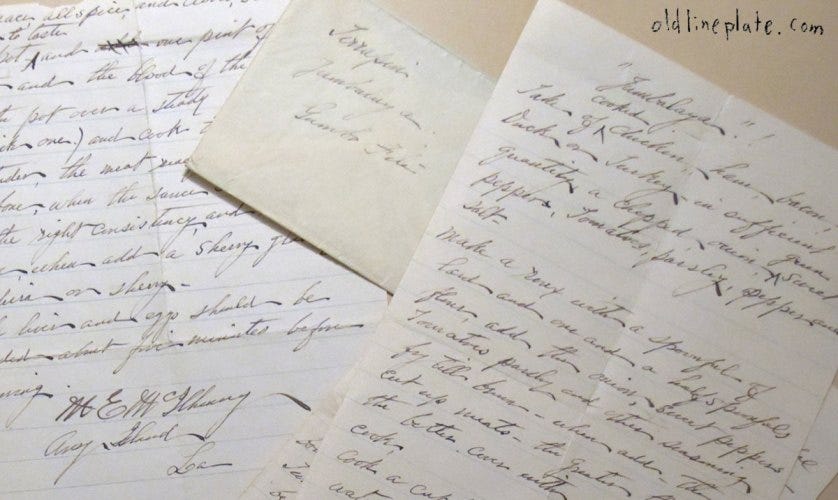 oldlineplate.com
mace, allspice, and cloves,
to taste
pot and one pint of
and the blood of the
the pot over a steady
one) and cook
tender, the meat
bone, when the sauce
the right consistency, and
when add a sherry glass
or sherry-
liver and eggs should be
added about five minutes before
serving
M E McIlhenny
Avery Island
La
Terrapin
Jambalaya
Gumbo Filé
"Jambalaya"!
cooked
Take of chicken, ham, bacon,
Duck or Turkey in sufficient
quantity, a chopped onion, green
sweet
pepper, Tomatoes, parsley, pepper and
salt-
make a roux with a spoonful of
lard and one and a half spoonfuls of
flour add the onion, sweet peppers
Tomatoes parsley and other seasoning
fry till brown - when add - the
cut up meats - the greater
the better. cover with
cook,
cook a cup